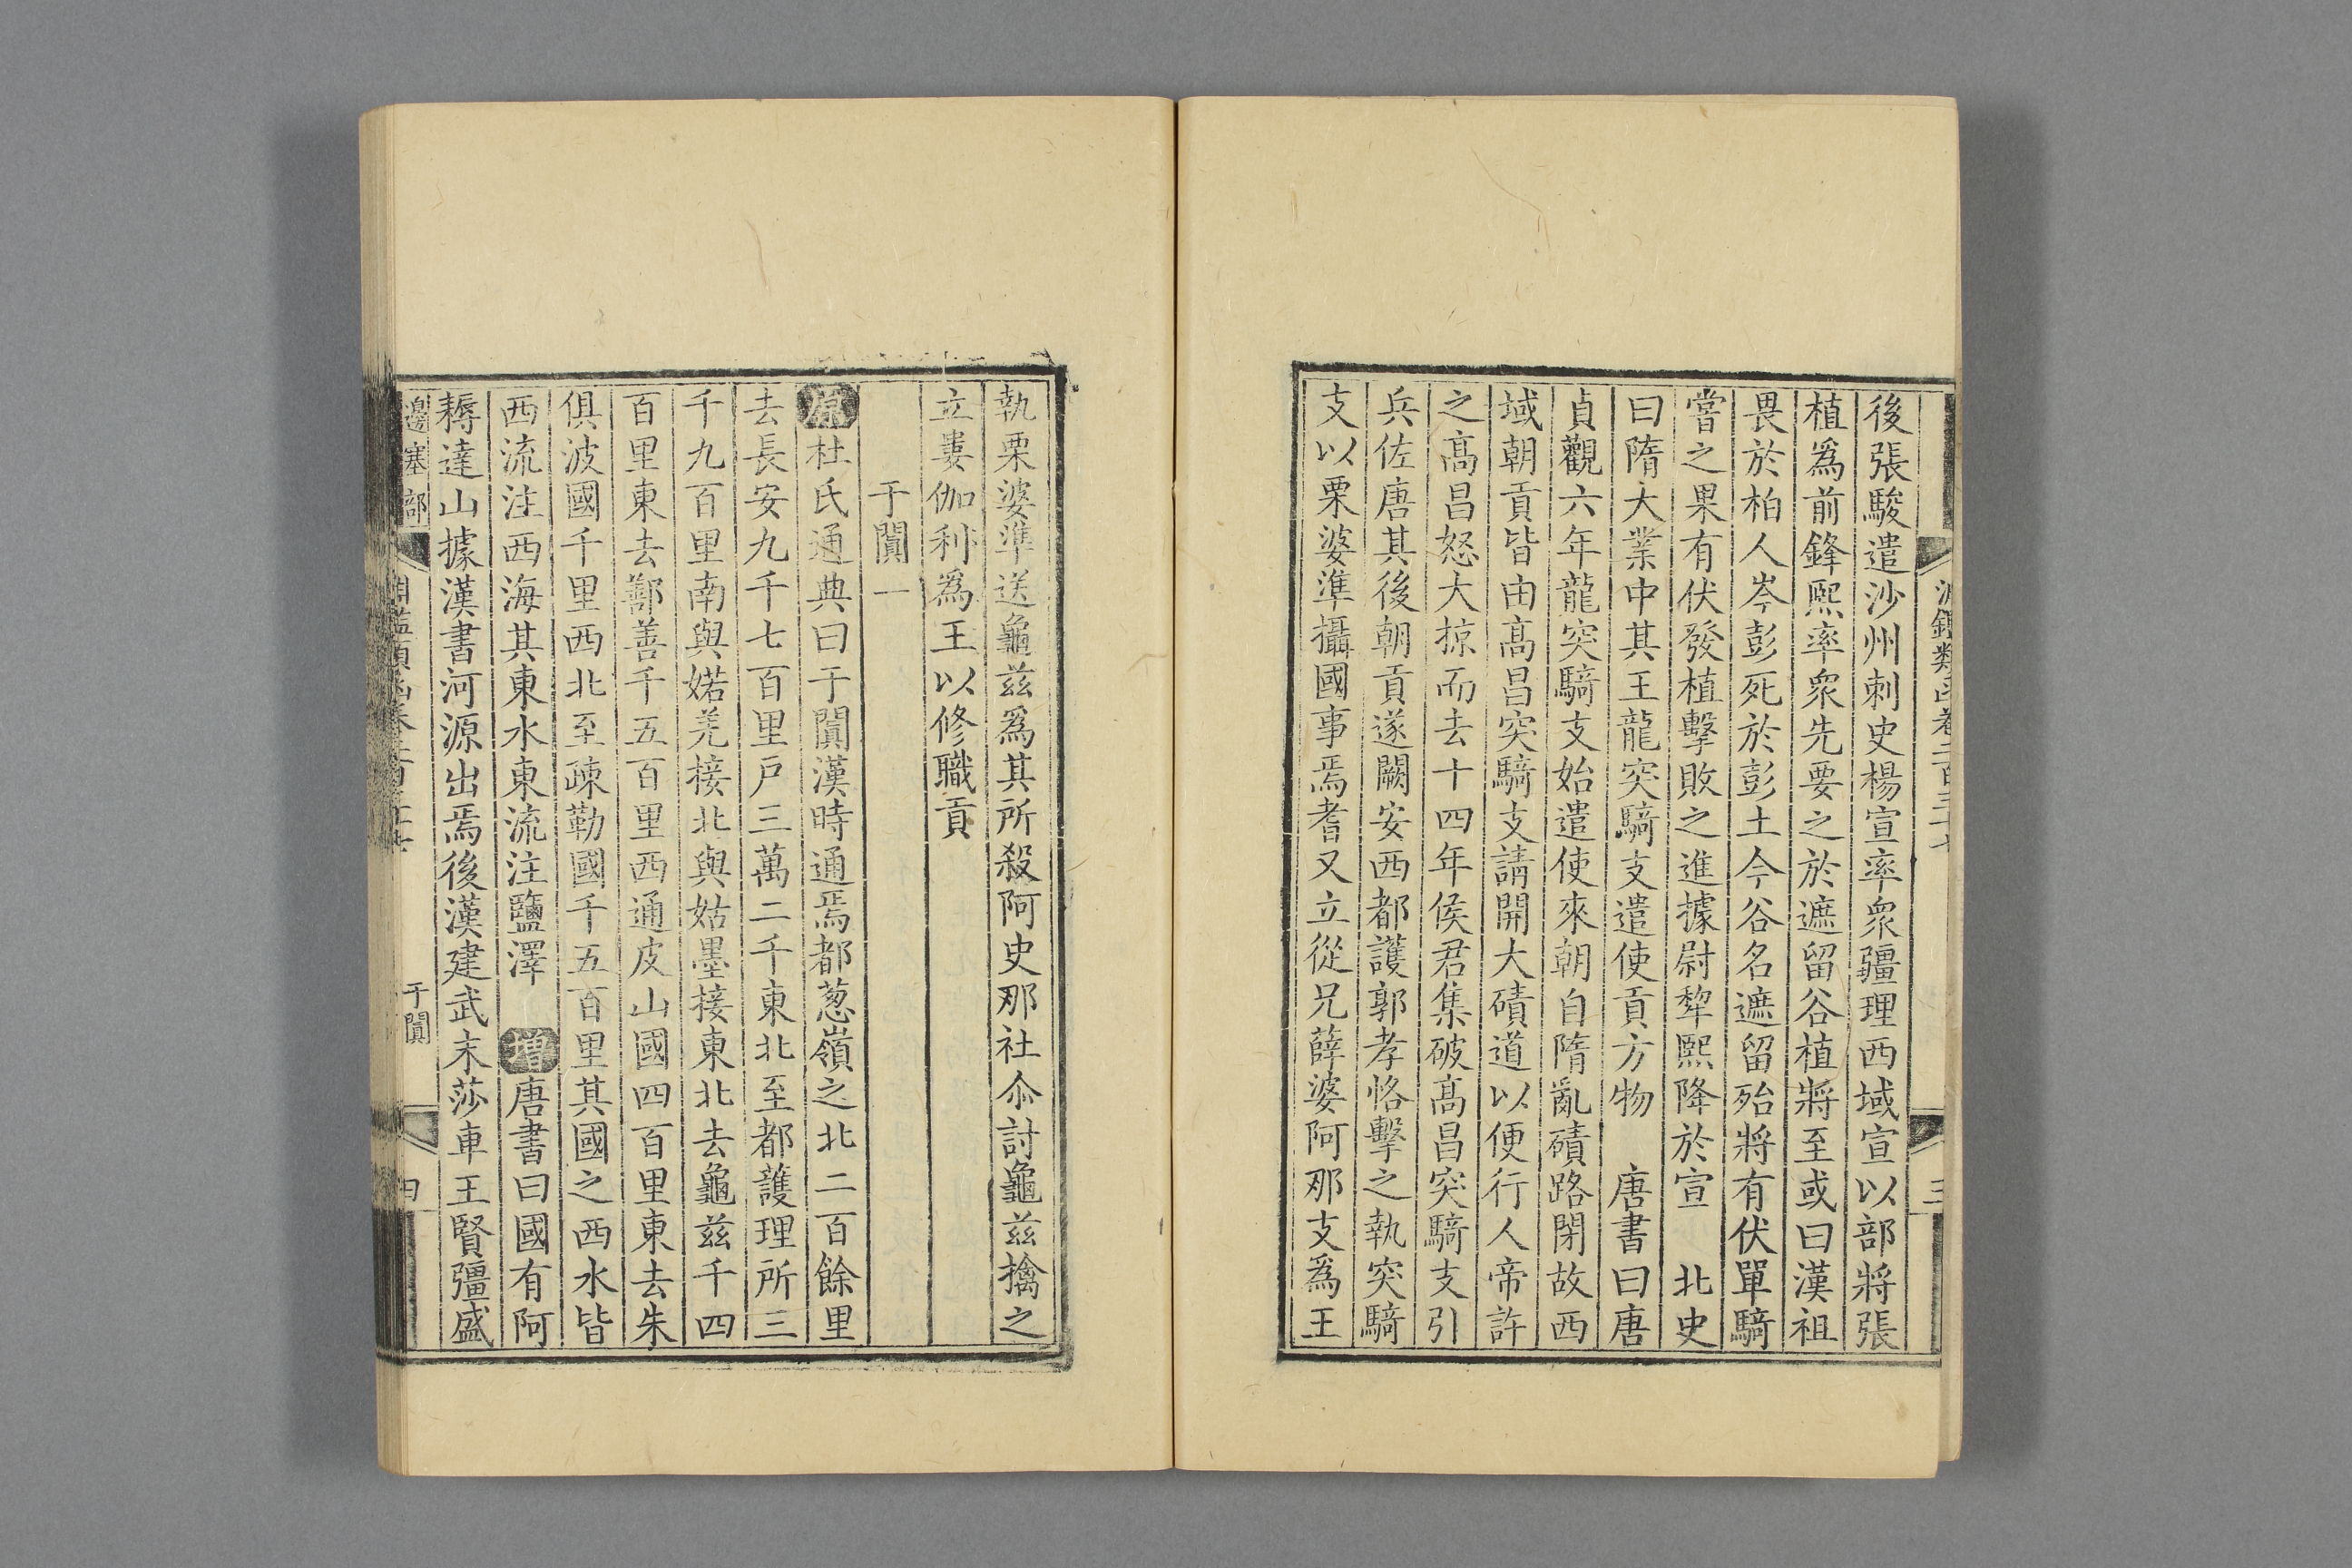 後張駿遣沙州刺史楊宣率衆疆理西域宣以部將張
植爲前鋒熙率衆先要之於遮留谷植將至或曰漢祖
畏於柏人岑彭死於彭土今谷名遮留殆將有伏單騎
嘗之果有伏發植擊敗之進據尉犂熙降於宣　北史
曰隋大業中其王龍突騎支遣使貢方物　唐書曰唐
貞觀六年龍突騎支始遣使來朝自隋亂磧路閉故西
域朝貢皆由髙昌突騎支請開大磧道以便行人帝許
之髙昌怒大掠而去十四年侯君集破髙昌突騎支引
兵佐唐其後朝貢遂闕安西都護郭孝恪擊之執突騎
支以栗婆準攝國事焉耆又立從兄薛婆阿那支爲王
執栗婆準送龜兹爲其所殺阿史那社尒討龜兹擒之
立婁伽利爲王以修職貢
于闐一
原杜氏通典曰于闐漢時通焉都葱嶺之北二百餘里
去長安九千七百里戸三萬二千東北至都護理所三
千九百里南與婼羌接北與姑墨接東北去龜兹千四
百里東去鄯善千五百里西通皮山國四百里東去朱
俱波國千里西北至疎勒國千五百里其國之西水皆
西流注西海其東水東流注鹽澤　增唐書曰國有阿
耨達山據漢書河源出焉後漢建武末莎車王賢彊盛
邊塞部
于闐
四